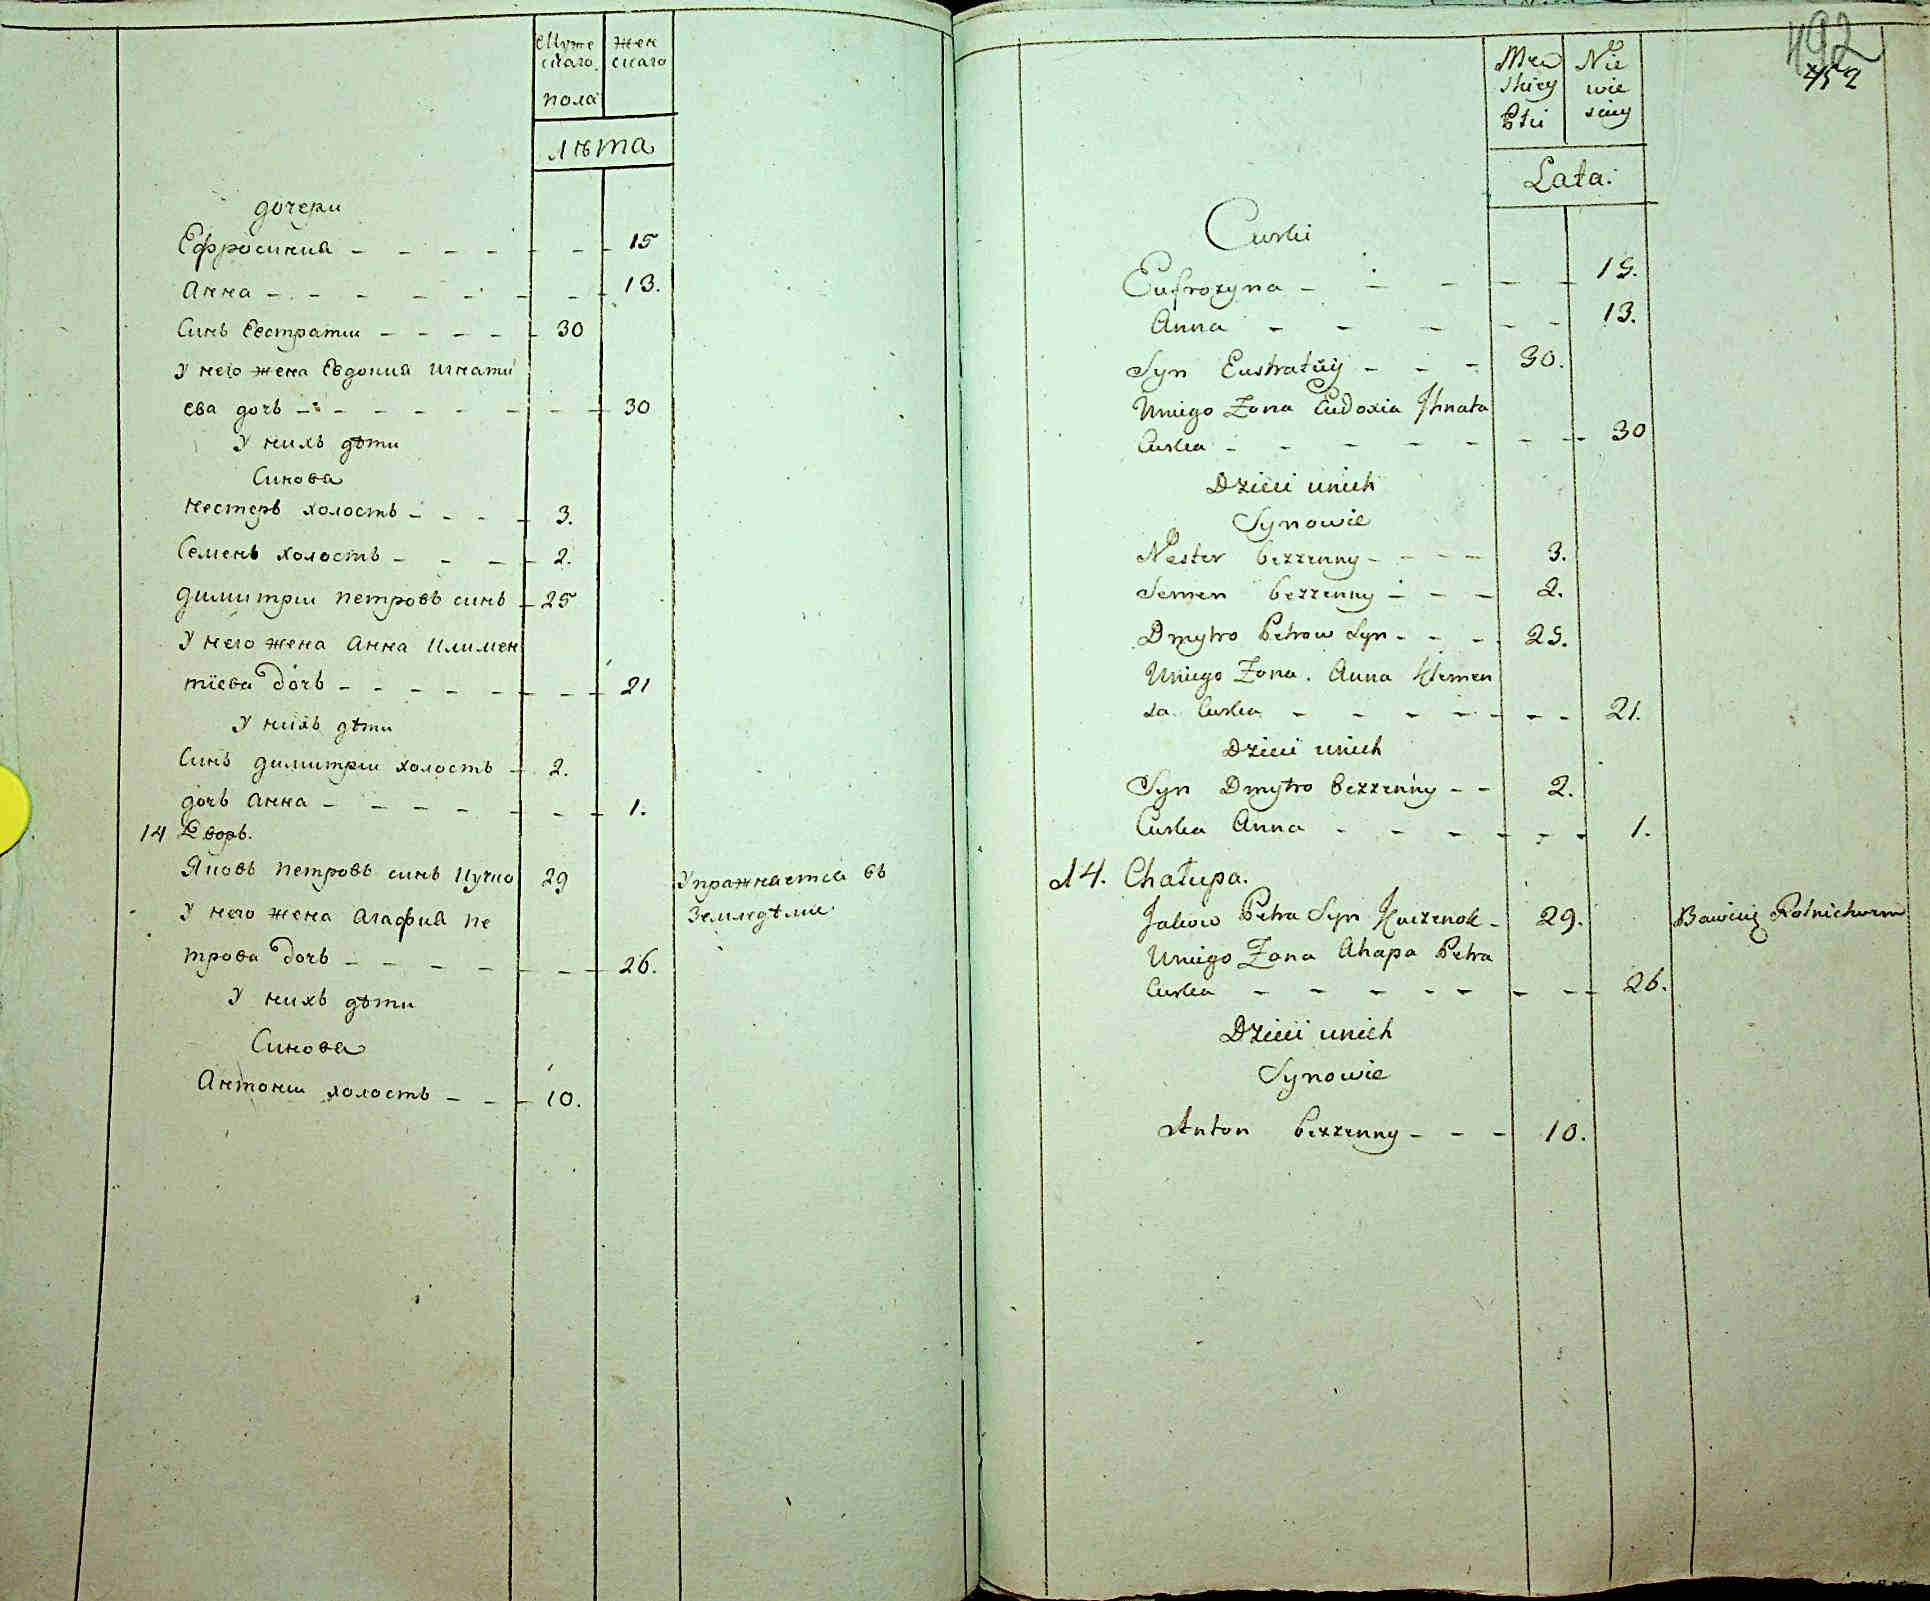 Муже
скаго
пола
жен
скаго
лѣта
дочери
Ефросиния - - - - - - 15
Анна - - - - - - - 13.
Синъ Евстратии - - - - - 30
У него жена Евдокия Игнати
ева дочь - - - - - - - - 30
У нихъ дѣти
Синова
Нестеръ холостъ - - - - 3.
Семенъ холостъ - - - - 2.
Димитрии Петровъ синъ - 25
У него жена Анна Климен
тїева дочь - - - - - - - - 21
У нихъ дѣти
Синъ Димитрии холостъ - 2.
дочь Анна - - - - - - - 1.
14 Дворъ.
Яковъ Петровъ синъ Кучко 29
У него жена Агафия Пе
трова дочь - - - - - - - 26.
У нихъ дѣти
Синова
Антонии холостъ - - - 10.
Упражняется въ
Земледѣлии
492
452
Mez
skiey
Płci
Nie
wie
sciey
Lata.
Curki
Eufrozyna - - - - - 15.
Anna - - - - - 13.
Syn Eustratiiy - - - 30.
Uniego Zona Eudoxia Ihnata
Curka - - - - - - - 30
Dzieci unich
Synowie
Nester bezzenny - - - - 3.
Semen bezzenny - - - 2.
Dmytro Petrow Syn - - - 25.
Uniego Zona. Anna Klemen
sa Curka - - - - - - - 21.
Dzieci unich
Syn Dmytro bezzenny - - 2.
Curka Anna - - - - - - - 1.
14. Chałupa.
Jakow Petra Syn Kuczenok - 29.
Uniego Zona Ahapa Petra
Curka - - - - - - - - 26.
Dzieci unich
Synowie
Anton bezzenny - - - 10.
Bawiącię Rolnictwem